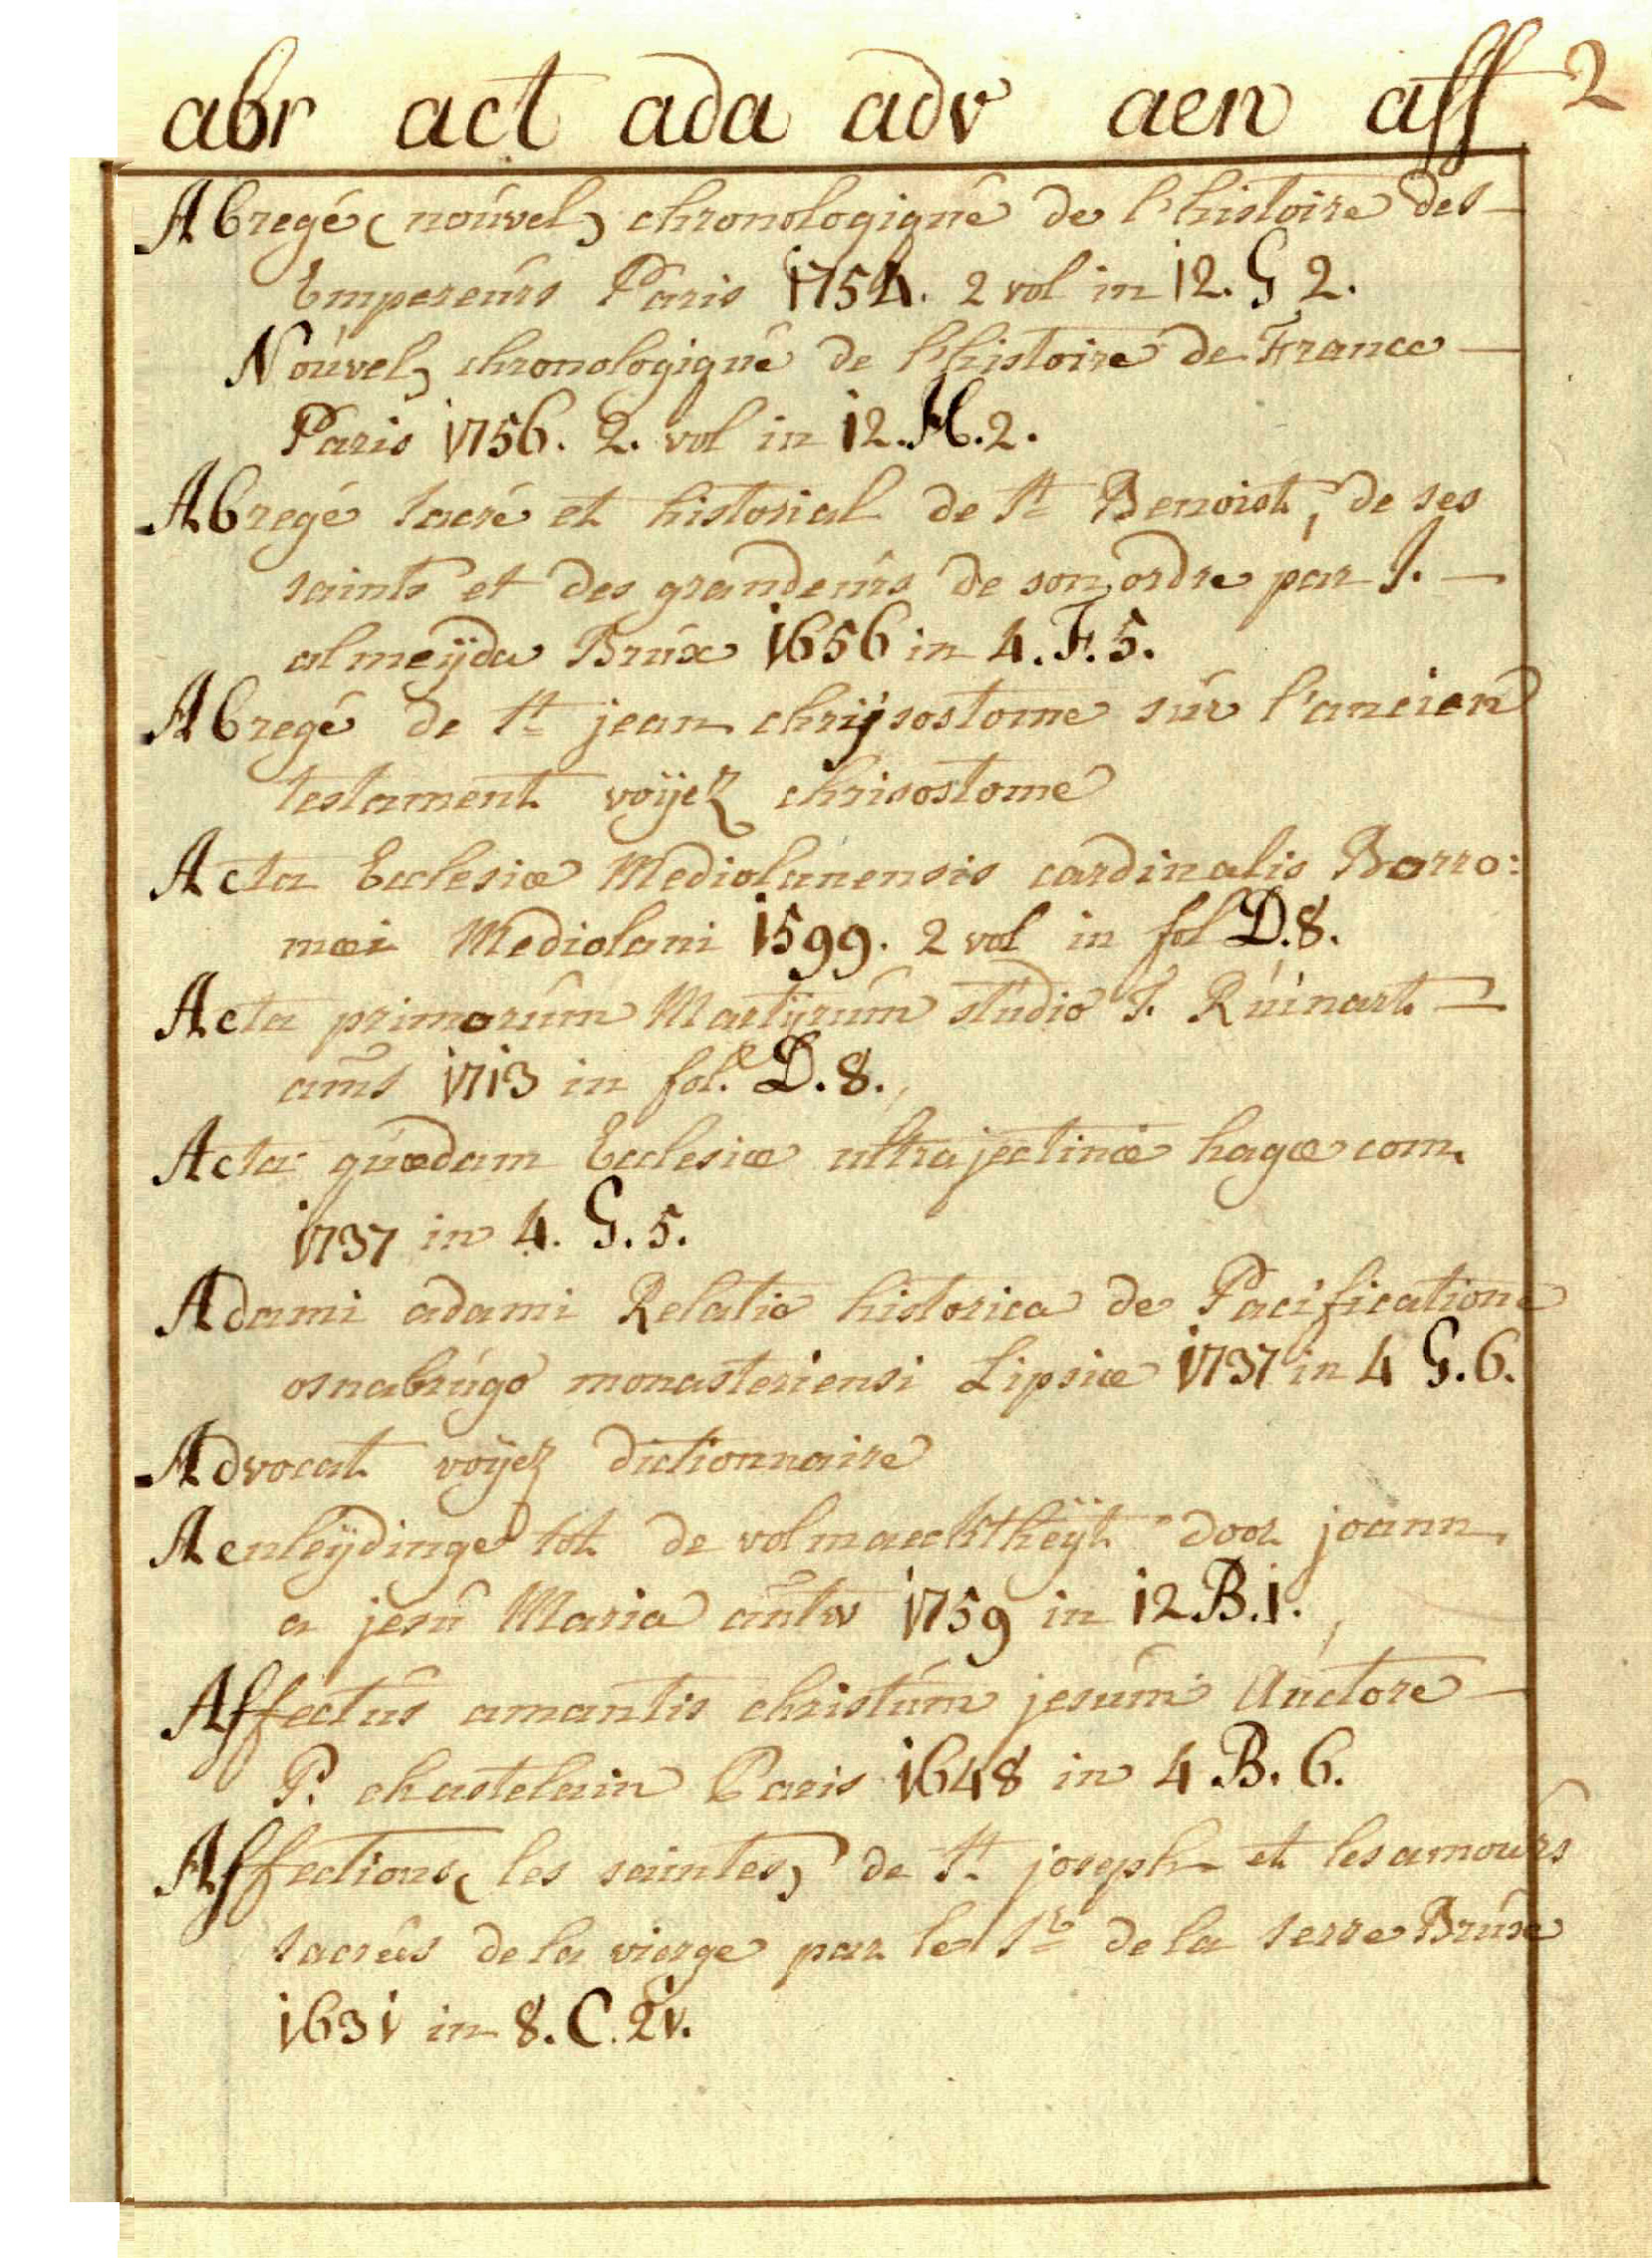 abr act ada adv aen aff 2
Abregé (nouvel) chronologique de l'histoire des
Empereurs Paris 1754. 2 vol in 12. G 2.
Nouvel) chronologique de l'histoire de France
Paris 1756. 2. vol in 12. H. 2.
Abregé sacré et historial de st Benoist, de ses
saints et des grandeurs de son ordre par J.
almeÿda Brux 1656 in 4. F. 5.
Abregé de st jean chrijsostome sur l'ancien
testament voÿez chrisostome
Acta Ecclesiæ Mediolanensis cardinalis Borro:
mæi Mediolani 1599. 2 vol in fol D. 8.
Acta primorum Martÿrum studio T. Ruinart
ams 1713 in fol. D. 8.
Acta quædam Ecclesiæ ultrajectinæ hagæ com.
1737 in 4. G. 5.
Adami adami Relatio historica de Pacificatione
osnabrugo monasteriensi Lipsiæ 1737 in 4 G. 6.
Advocat voÿez dictionnaire
Aenleÿdinge tot de volmaecktheÿt door joann
a jesu Maria antw 1759 in 12. B. 1.
Affectus amantis christum jesum Auctore
P. chastelain Paris 1648 in 4 B. 6.
Affections (les saintes) de st joseph et les amours
sacrées de la vierge par le sr de la serre Brux
1631 in 8. C. 21.